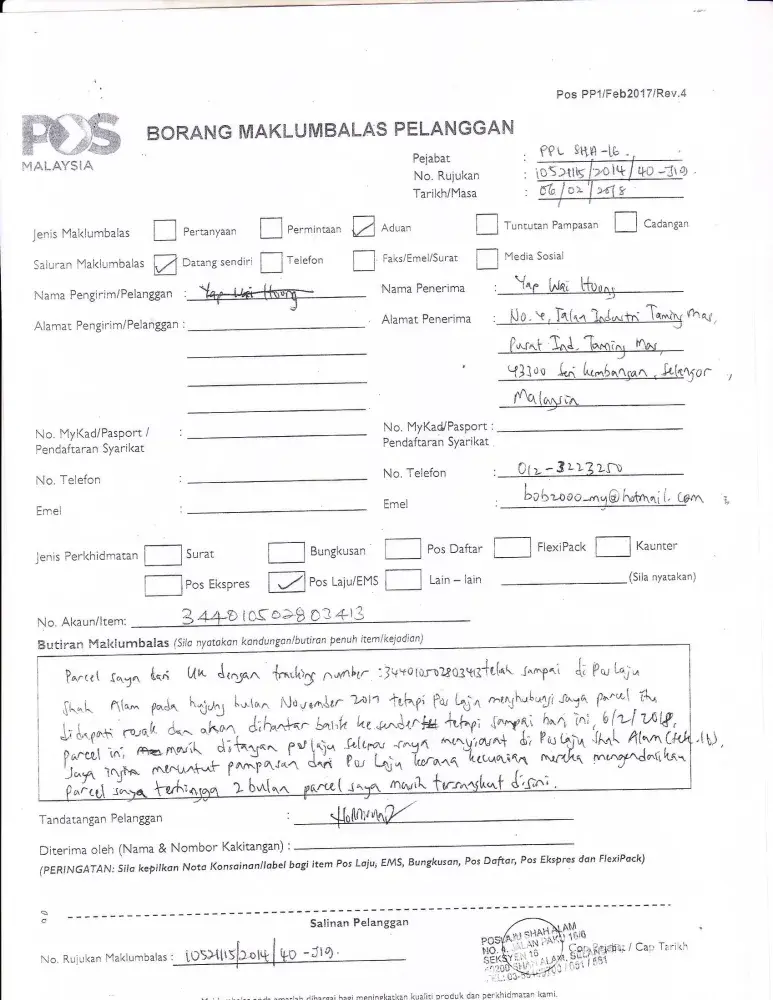 Pos PP1/Feb2017/Rev.4
POS
MALAYSIA
BORANG MAKLUMBALAS PELANGGAN
Pejabat : PPL SHA-16
No. Rujukan : 10521115/2014/40-J19.
Tarikh/Masa : 06/02/2018
Jenis Maklumbalas Pertanyaan Permintaan Aduan Tuntutan Pampasan Cadangan
Saluran Maklumbalas Datang sendiri Telefon Faks/Emel/Surat Media Sosial
Nama Pengirim/Pelanggan : Yap Wai Huong
Nama Penerima : Yap Wai Huong
Alamat Pengirim/Pelanggan :
Alamat Penerima : Jalan Industri Taming Mas,
Pusat Ind. Taming Mas,
43300 Seri Kembangan, Selangor,
Malaysia
No. MyKad/Pasport / Pendaftaran Syarikat :
No. MyKad/Pasport : Pendaftaran Syarikat
No. Telefon :
No. Telefon : 012-3223250
Emel :
Emel : bob2000_my@hotmail.com
Jenis Perkhidmatan Surat Bungkusan Pos Daftar FlexiPack Kaunter
Pos Ekspres Pos Laju/EMS Lain – lain (Sila nyatakan)
No. Akaun/Item: 344010502803413
Butiran Maklumbalas (Sila nyatakan kandungan/butiran penuh item/kejadian)
Parcel saya dari UK dengan tracking number :344010502803413 telah sampai di Pos Laju
Shah Alam pada hujung bulan November 2017 tetapi Pos Laju menghubungi saya parcel itu
didapati rosak dan akan dihantar balik ke sender tetapi sampai hari ini, 6/2/2018,
parcel ini masih ditangan pos laju selepas saya menyiasat di Pos Laju Shah Alam (sek.16),
Saya ingin menuntut pampasan dari Pos Laju kerana mereka
parcel saya terhingga 2 bulan parcel saya masih tersangkut disini.
Tandatangan Pelanggan :
Diterima oleh (Nama & Nombor Kakitangan) :
(PERINGATAN: Sila kepilkan Nota Konsainan/label bagi item Pos Laju, EMS, Bungkusan, Pos Daftar, Pos Ekspres dan FlexiPack)
Salinan Pelanggan
No. Rujukan Maklumbalas : 10521115/2014/40-J19.
POSLAJU SHAH ALAM
JALAN PAKU 16/6
SEKSYEN 16
/ Cap Tarikh